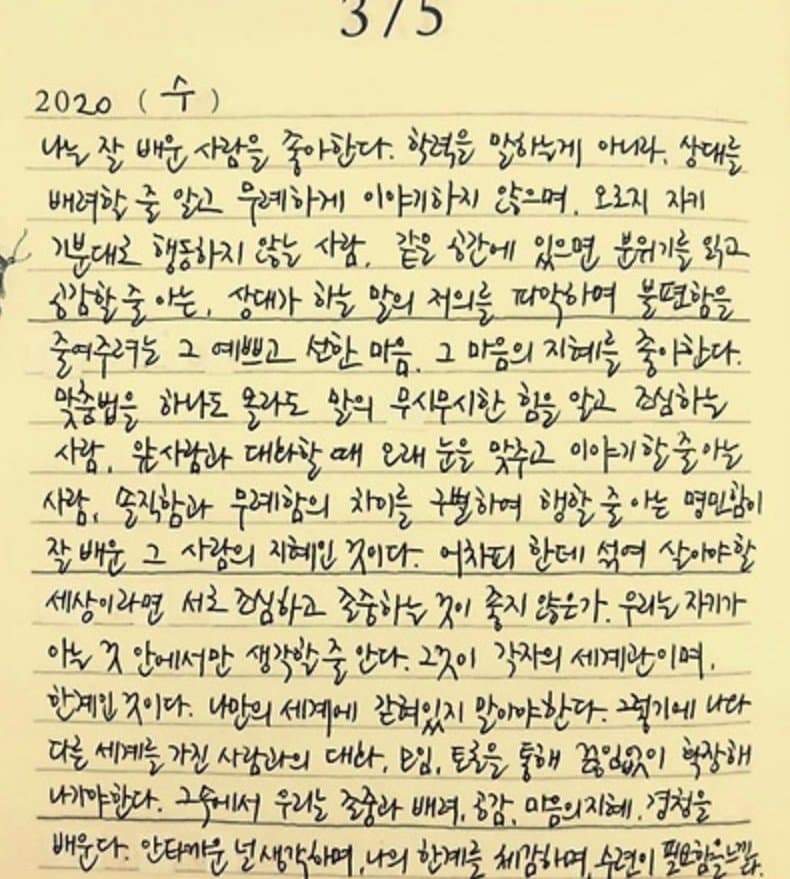 375
2020 (수)
나는 잘 배운 사람을 좋아한다. 학력을 말하는게 아니라, 상대를
배려할 줄 알고 무례하게 이야기하지 않으며, 오로지 자기
기분대로 행동하지 않는 사람. 같은 공간에 있으면 분위기를 읽고
공감할 줄 아는, 상대가 하는 말의 저의를 파악하며 불편함을
줄여주려는 그 예쁘고 선한 마음, 그 마음의 지혜를 좋아한다.
맞춤법을 하나도 몰라도 말의 무시무시한 힘을 알고 조심하는
사람, 앞사람과 대화할 때 오래 눈을 맞추고 이야기 할 줄 아는
사람, 솔직함과 무례함의 차이를 구별하여 행할 줄 아는 명민함이
잘 배운 그 사람의 지혜인 것이다. 어차피 한데 섞여 살아야할
세상이라면 서로 조심하고 존중하는 것이 좋지 않은가. 우리는 자기가
아는 것 안에서만 생각할 줄 안다. 그것이 각자의 세계관이며,
한계인 것이다. 나만의 세계에 갇혀있지 말아야한다. 그렇기에 나와
다른 세계를 가진 사람과의 대화, 모임, 토론을 통해 끊임없이 확장해
나가야한다. 그속에서 우리는 존중과 배려, 공감, 마음의지혜, 경청을
배운다. 안타까운 널 생각하며, 나의 한계를 체감하며, 수련이 필요함을느낀다.